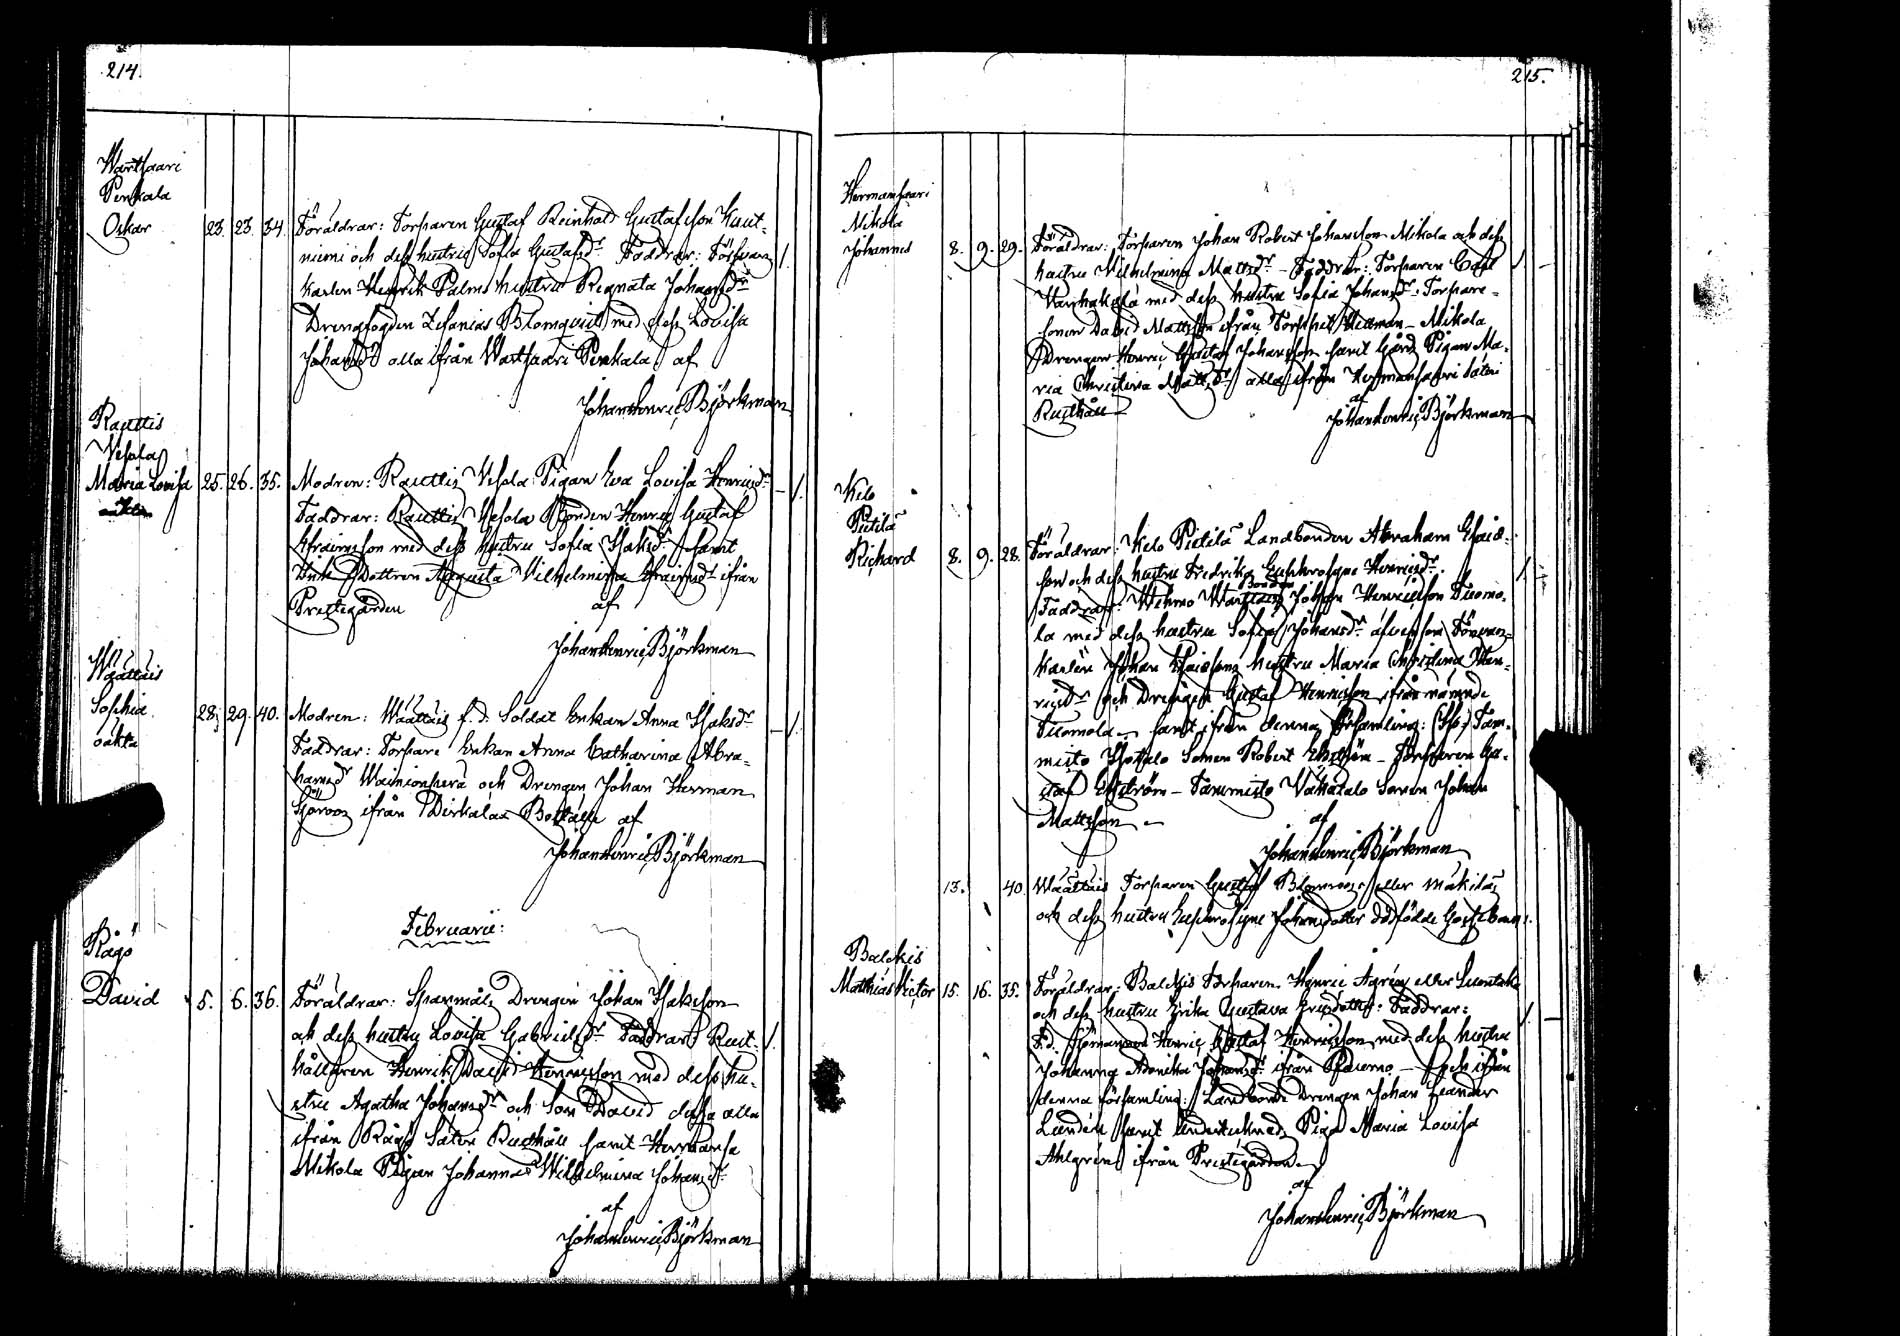 214.
Wartsaari
Penkala
Oskar 23. 23. 34. Föräldrar: Torparen Gustaf Reinhold Gustafsson Kuut-
niemi och dess hustru Sofia Gustafsdr. Faddrar:
karlen Henrik Palms hustru Regnata Johansdr
Drengfogden Zefanias Blomqvist med dess Lovisa
Johansdr alla ifrån Wartsaari Penkala af
Johan Henric Björkman
Rauttis
Vesola
Maria Lovisa 25. 26. 35. Modren: Rauttis Vesola Pigan Eva Lovisa Henricsdr
Faddrar: Rauttis Vesola Bonden Henric Gustaf
Efraimsson med dess hustru Sofia Isaksdr samt
Enk Dottren Augusta Vilhelmina Efraimsdr ifrån
Prestegården af
Johan Henric Björkman
Wäättäis
Sophia 28. 29. 40. Modren: Wäättäis f. d. Soldat Enkan Anna Isaksdr
oäkta Faddrar: Torpare Enkan Anna Catharina Abra-
hamsdr Wainionperä och Drengen Johan Herman
Sjöroos ifrån Pirkala af
Johan Henric Björkman
Februarii:
Rägö
David 5. 6. 36. Föräldrar: Drengen Johan Isaksson
och dess hustru Lovisa Gabrielsdr Faddrar: Rust-
hållaren Henrik David Henricsson med dess hu-
stru Agatha Johansdr och Son David dessa alla
ifrån Rägö Säteri Rusthåll samt Hermansa
Mikola Pigan Johanna Wilhelmina Johansdr
af
Johan Henric Björkman
215.
Hermansaari
Mikola
Johannes 8. 9. 29. Föräldrar: Torparen Johan Robert Johansson Mikola och dess
hustru Vilhelmina Mattsdr - Faddrar: Torparen Carl
med dess hustru Sofia Johansdr: Torpare-
sonen David Mattsson ifrån Mikola
Drengen Henric Gustaf Johansson samt Gårds Pigan Ma-
ria Christina Mattsdr alla ifrån Hermansaari Säteri
Rusthåll af
Johan Henric Björkman
Kelo
Pietilä
Richard 8. 9. 28. Föräldrar: Kelo Pietilä Landbonden Abraham Esais-
son och dess hustru Fredrika Euphrosyne Henricsdr.
Faddrar: Wehmo Bonden Johan Henricsson Tuomo-
la med dess hustru Sofia Johansdr äfvensom
karlen Johan Esaissons hustru Maria Christina Hen-
ricsdr och Drengen Gustaf Henricsson ifrån nämnde
Tuomola samt ifrån denna församling: Tam-
misto Isotalo Sonen Robert Ekström - Torparen Gu-
staf Ekström - Tammisto Vähätalo Sonen Johan
Mattsson af
Johan Henric Björkman
13. 40. Wäättäis Torparen Gustaf Blomroos eller Mäkilä
och dess hustru Euphrosyne Johansdotter dödfödde Gossebarn.
Balckis
Mathias Victor 15. 16. 35. Föräldrar: Balckis Torparen Henric Agrén eller
och dess hustru Erika Gustava Ericsdotter: Faddrar:
f. d. Sjömannen Henric Gustaf Henricsson med dess hustru
Johanna Adonika Johansdr ifrån och ifrån
denna församling: Landbonde Drengen Johan Leander
Lundén samt Piga Maria Lovisa
Ahlgrén ifrån Prestegården
af
Johan Henric Björkman